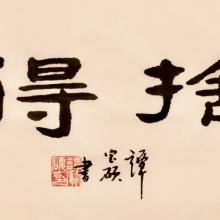 捨得
譚
宝碩
書